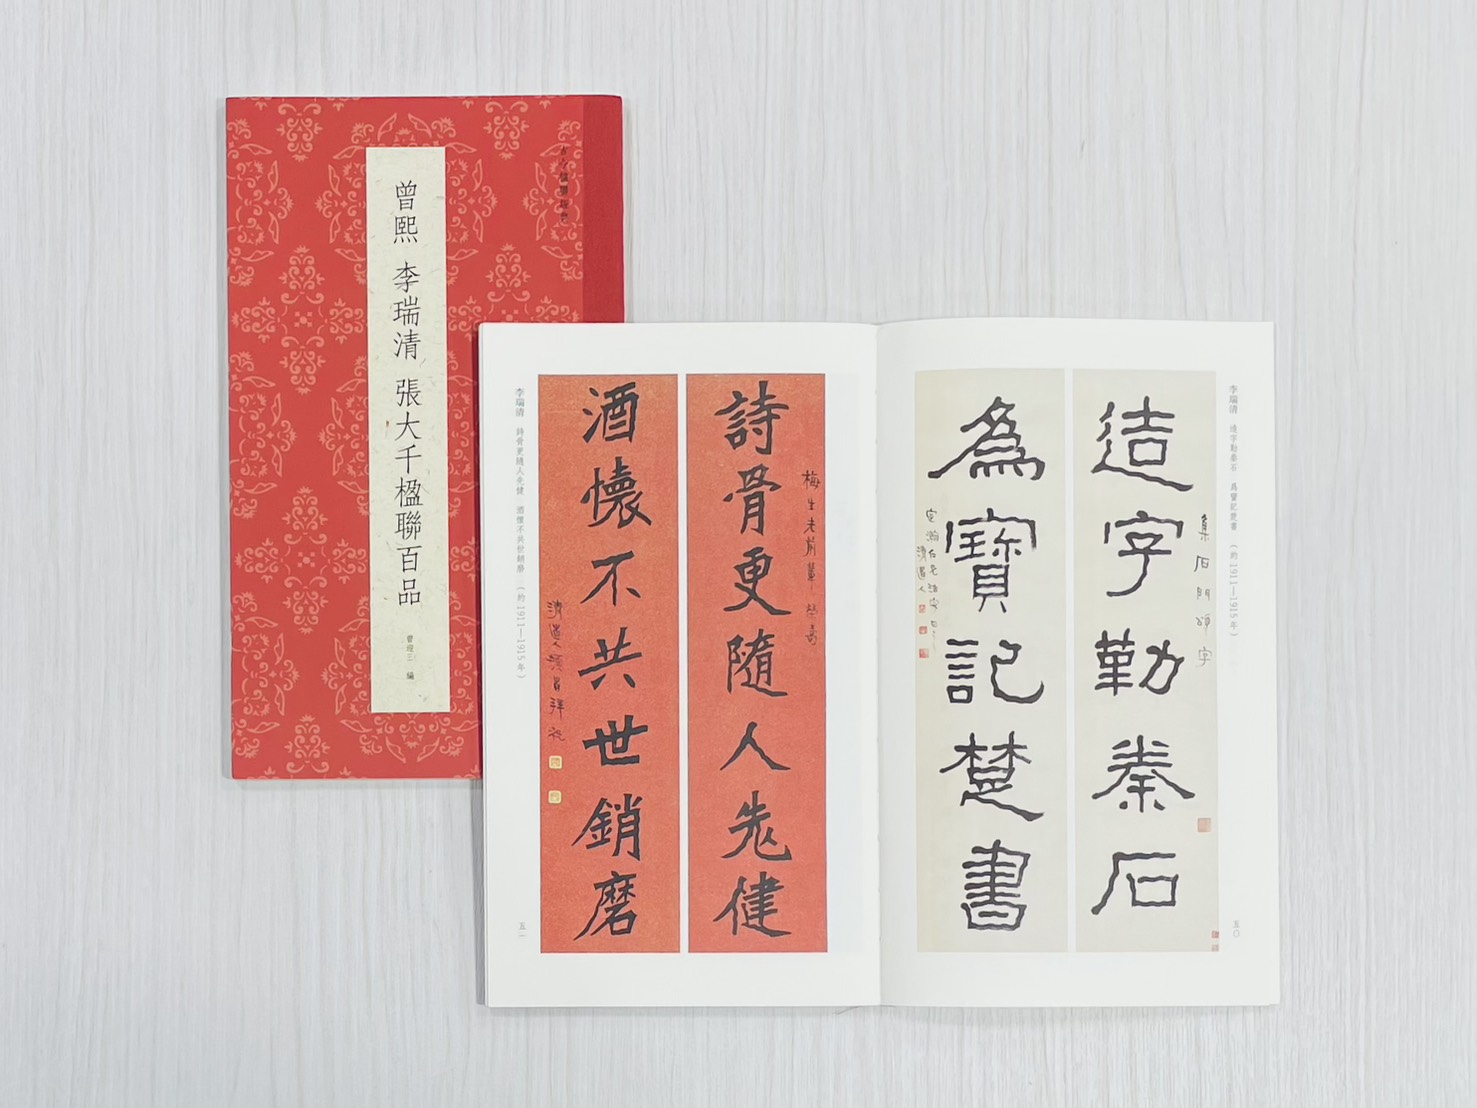 古今楹聯類墨
曾熙 李瑞清 張大千楹聯百品
曾迎三 編
李瑞清 造字勒秦石 爲寶記楚書 （約1911—1915年）
五〇
集石門頌字
造字勒秦石
為寶記楚書
清道人
梅生老前輩榮壽
詩骨更隨人先健
酒懷不共世銷磨
清道人
李瑞清 詩骨更隨人先健 酒懷不共世銷磨 （約1911—1915年）
五一